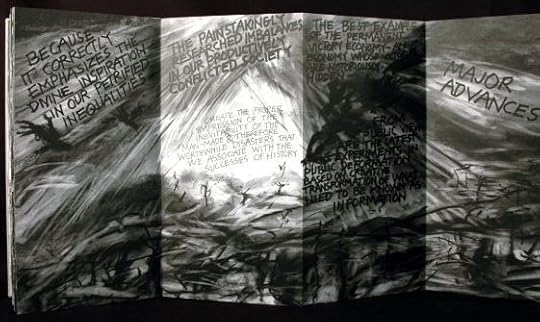 BECAUSE
IT CORRECTLY
EMPHASIZES THE
DIVINE INSPIRATION
IN OUR PETRIFIED
INEQUALITIES
THE PAINSTAKINGLY
RESEARCHED IMBALANCES
IN OUR PRODUCTIVELY
CONFLICTED SOCIETY
CREATE THE PROPER
IMPRESSION OF THE
INEVITABILITY OF THE
MAN-MADE & THEREFORE
WORTHWHILE DISASTERS THAT
WE ASSOCIATE WITH THE
SUCCESSES OF HISTORY
THE BEST EXAMPLE
OF THE PERMANENT
VICTORY ECONOMY-AN
ECONOMY WHOSE
ARE NOTORIOUSLY
HIDDEN
FROM
PUBLIC VIEW
ARE THE LATEST
EXPERIMENTS IN
PUBLIC INFORMATION
BASED ON CREATIVE
TRANSFORMATIONS OF WHAT
USED TO BE KNOWN AS
INFORMATION
MAJOR
ADVANCES